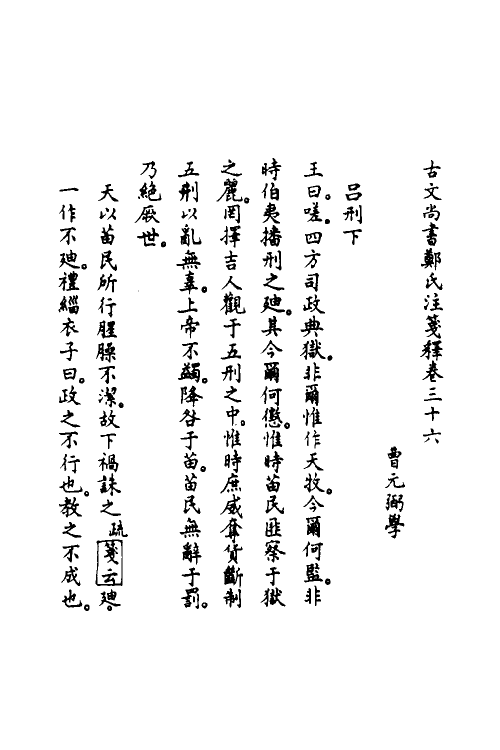 古文尚書鄭氏注箋釋卷三十六
曹元弼學
呂刑下
王曰。嗟。四方司政典獄。非爾惟作天牧。今爾何監。非
時伯夷播刑之迪。其今爾何懲。惟時苗民匪察于獄
之麗。罔擇吉人觀于五刑之中。惟時庶威奪貨。斷制
五刑以亂無辜。上帝不蠲。降咎于苗。苗民無辭于罰。
乃絕厥世。
天以苗民所行腥臊不潔。故下禍誅之疏箋云迪。
一作不迪。禮緇衣子曰。政之不行也。教之不成也。